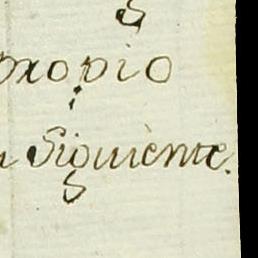 propio
Siguiente.